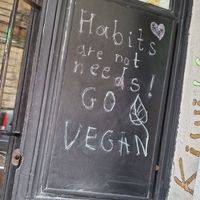 Habits
are not
needs!
GO
VEGAN